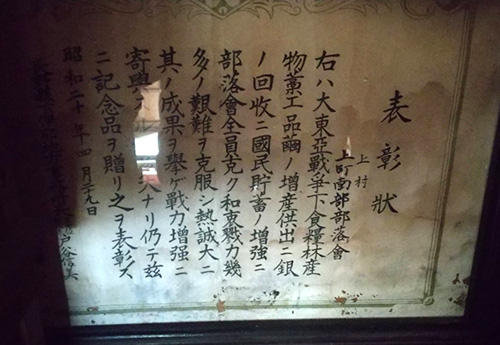 表彰狀
上村
上町南部部落會
右ハ大東亞戰爭下食糧林産
物藁工品繭ノ增産供出ニ銀
ノ回收ニ國民貯蓄ノ增强ニ
部落會全員克ク和衷戮力幾
多ノ艱難ヲ克服シ熱誠大ニ
其ノ成果ヲ擧ゲ戰力增强ニ
寄與 大ナリ仍テ玆
ニ記念品ヲ贈リ之ヲ表彰ス
昭和二十年四月二十九日